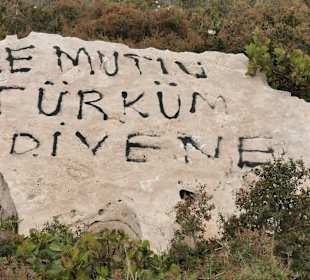 E MUTLU
TÜRKÜM
DİYENE